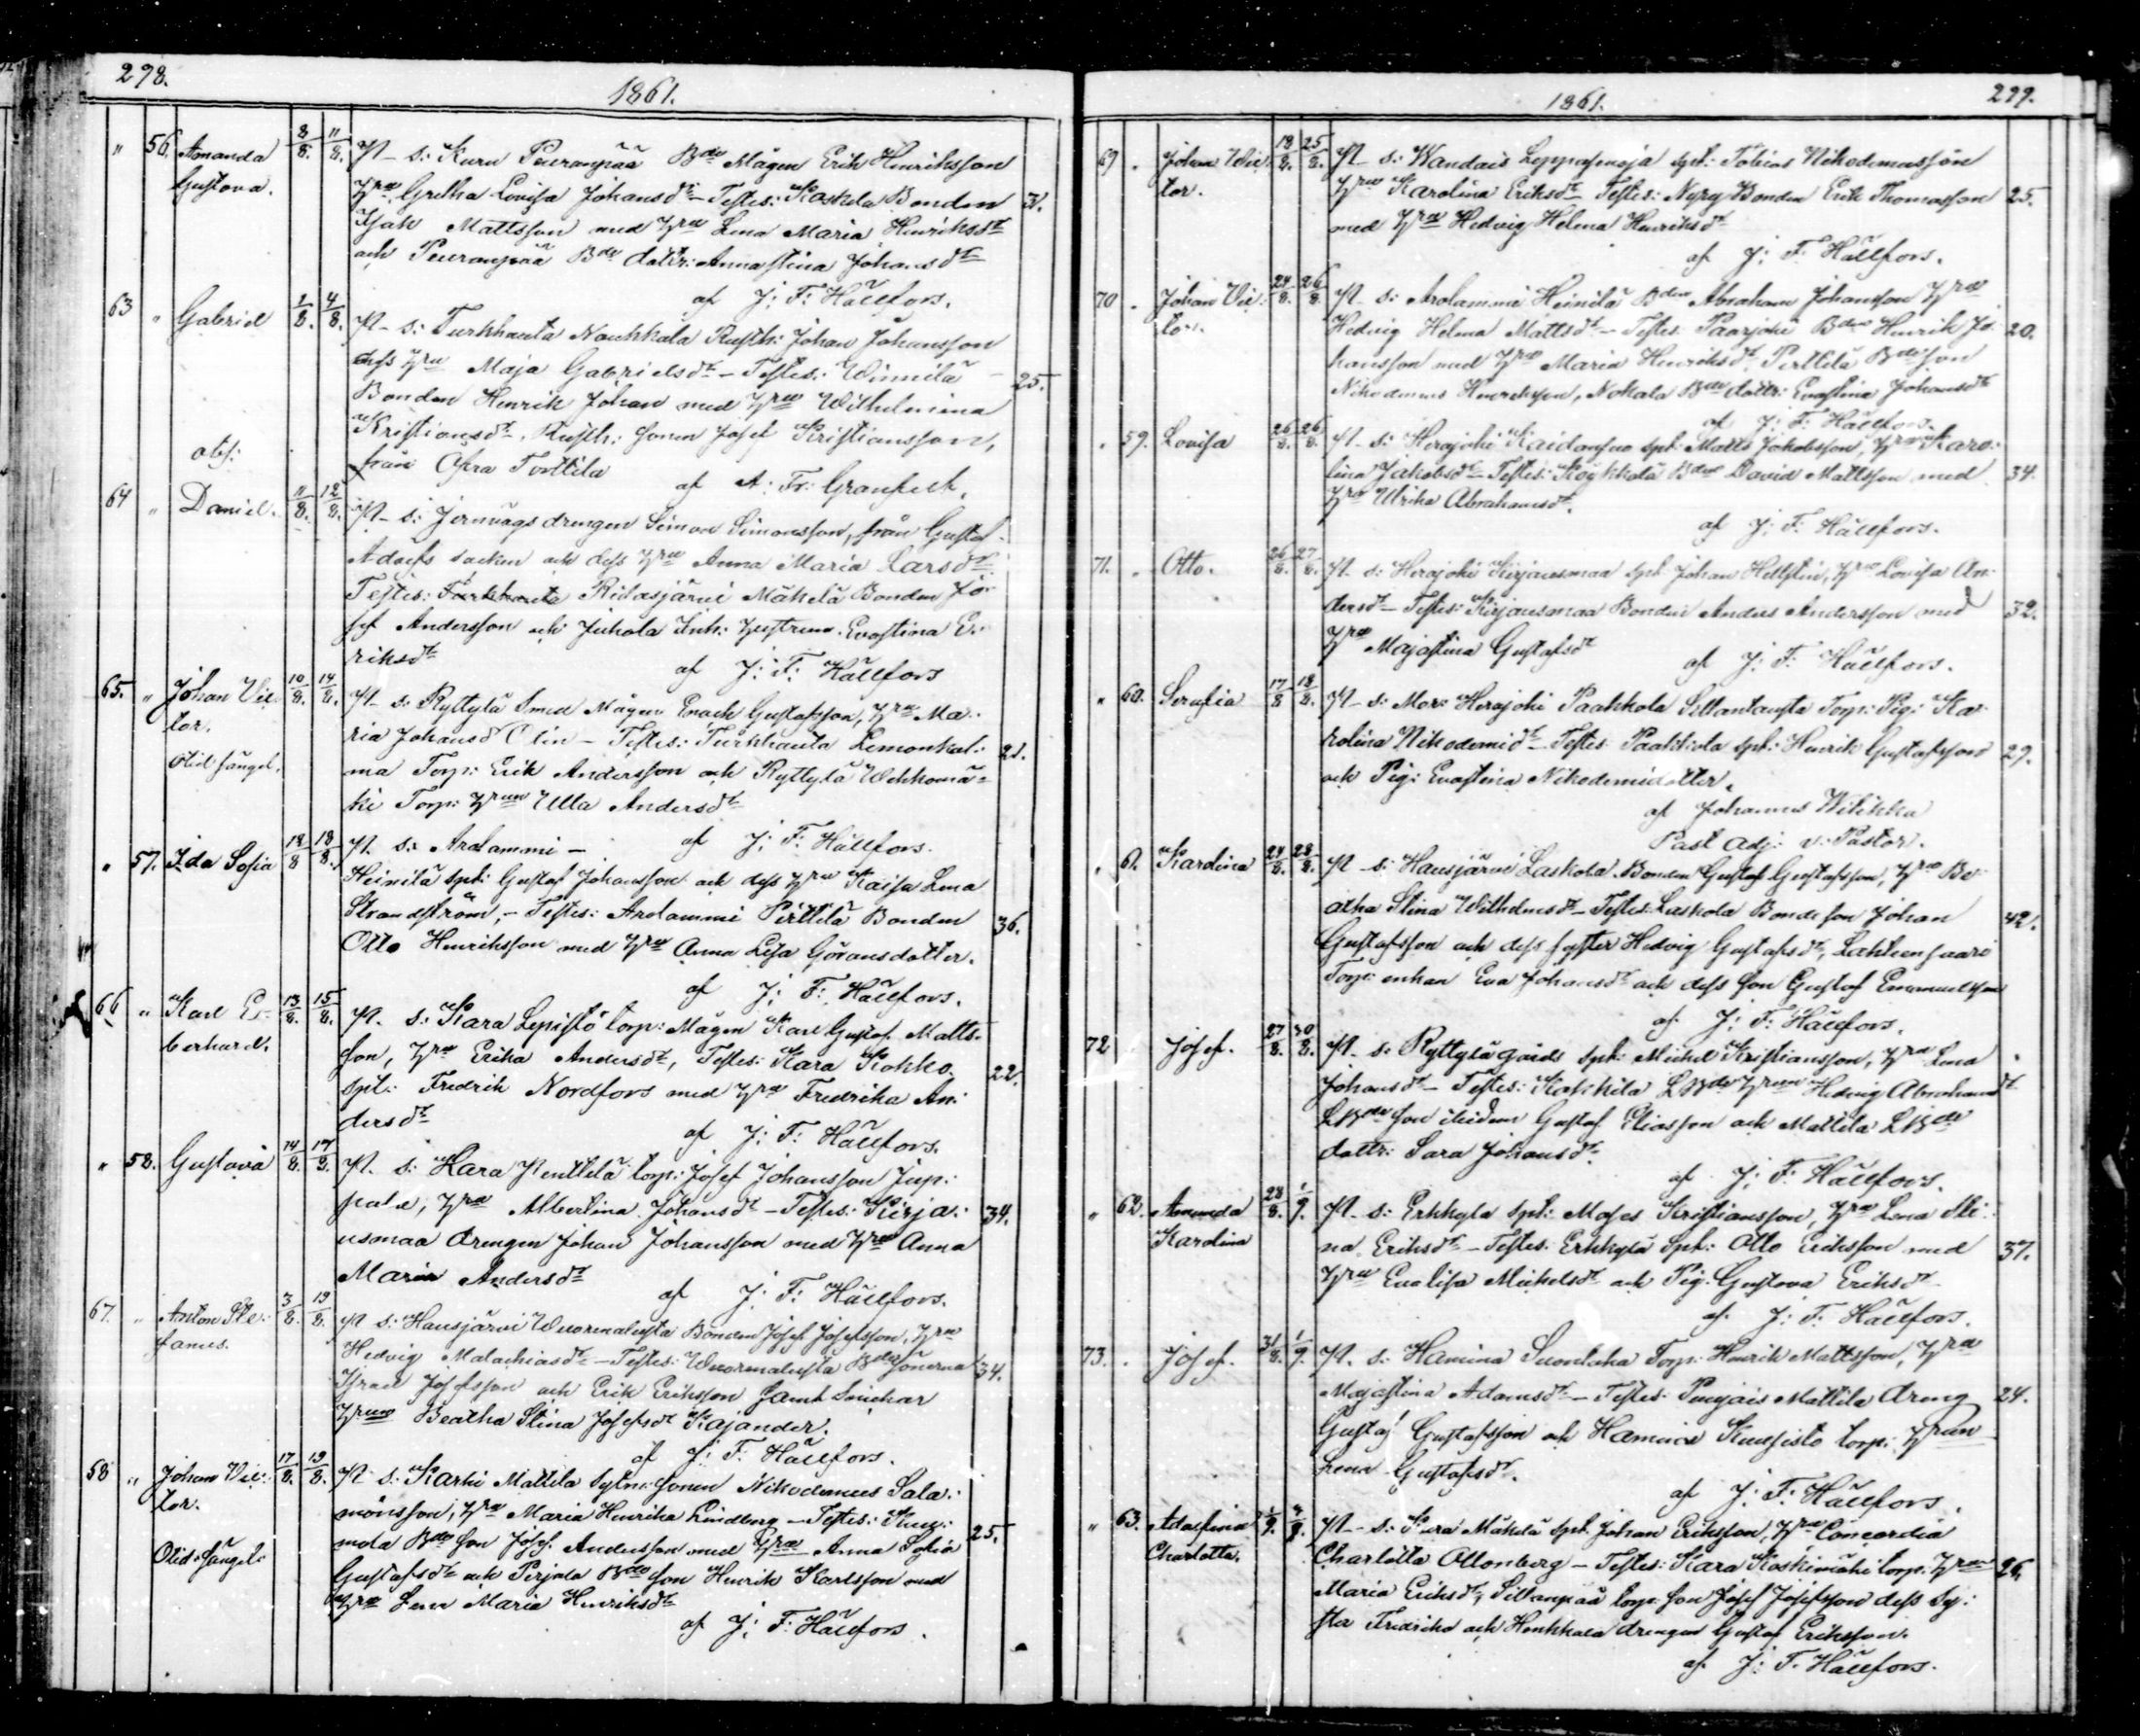 278.
1861.
" 56. Amanda 8/8. 11/8. Pt. s: Kuru Peuranpää Bde Mågen Erik Henriksson
Gustava. Hru Gretha Lovisa Johansdr – Testes: Koskela Bonden 31.
Isak Mattsson med Hru Lena Maria Henriksdr
och Peuranpää Bde dottr: Anna Stina Johansdr
af J: F: Hällfors.
63 " Gabriel 1/8. 4/8. Pt. s: Turkhauta Naukkala Rusth: Johan Johansson
dess Hru Maja Gabrielsdr – Testes: Winnilä 25.
Bonden Henrik Johan med Hru Wilhelmina
Kristiansdr, Rusth: sonen Josef Kristiansson,
från Torttila
af A: Fr: Granfelt.
64 " Daniel. 11/8. 12/8. Pt. s: Jernvägs drengen Simon Simonsson, från Gustaf
Adolfs socken och dess Hru Anna Maria Larsdr
Testes: Turkhauta Ridasjärvi Mäkelä Bonden Jo-
sef Andersson och Juhola Inh: hustrun Evastina E-
riksdr af J: F: Hällfors
65. " Johan Vik- 10/8. 14/8. Pt. s: Ryttylä Smed Mågen Enock Gustafsson, Hru Ma-
tor. ria Johansd Olin – Testes: Turkhauta Lemonkal- 21.
ma Torp: Erik Andersson och Ryttylä Wehkomä-
ki Torp: Hrun Ulla Andersdr
af J: F: Hällfors.
" 57. Ida Sofia 18/8 18/8. Pt. s: Arolammi –
Heinilä spt: Gustaf Johansson och dess Hru Kaisa Lena
Strandström, – Testes: Arolammi Pirttilä Bonden 36.
Otto Henriksson med Hru Anna Lisa Göransdotter.
af J: F: Hällfors.
66 " Karl E- 13/8. 15/8. Pt. s: Kara Lepistö torp: Mågen Karl Gustaf Matts-
berhard. son, Hru Erika Andersdr, Testes: Kara Kokko 22.
spt: Fredrik Nordfors med Hru Fredrika An-
dersdr af J: F: Hällfors.
" 58. Gustava 14/8. 17/8. Pt. s: Kara Penttilä torp: Josef Johansson
Hru Albertina Johansdr – Testes: Kirja- 34.
usmaa drengen Johan Johansson med Hru Anna
Maria Andersdr af J: F: Hällfors.
67. " Anton Ste- 3/8. 19/8. Pt s: Hausjärvi Wuorenalusta Bonden Josef Josefsson, Hru
fanus. Hedvig Malachiasdr – Testes: Wuorenalusta Bde Sönerna 34.
Israel Josefsson och Erik Eriksson samt Snickar
Hrun Beatha Stina Josefsdr Kajander.
af J: F: Hällfors.
68 " Johan Vik- 17/8. 19/8. Pt s: Karhi Mattila Sytn: sonen Nikodemus Salo-
tor. monsson, Hru Maria Henrika Lindberg – Testes:
mola Bde son Josef Andersson med Hru Anna Sofia 25.
Gustafsdr och Perjola Bde son Henrik Karlsson med
Hru Lena Maria Henriksdr
af J: F: Hällfors.
1861.
299.
69 " Johan Vik- 19/8. 25/8. Pt. s: Wandais Leppäsenoja spt: Tobias Nikodemusson
tor. Hru Karolina Eriksdr Testes: Nyry Bonden Erik Thomasson 25.
med Hru Hedvig Helena Henriksdr
af J: F: Hällfors.
70 " Johan Vik- 24/8. 26/8. Pt. s: Arolammi Heinilä Bden Abraham Johansson Hru
tor. Hedvig Helena Mattsdr – Testes: Paarjoki Bden Henrik Jo- 20.
hansson med Hru Maria Henriksdr, Perttilä Bde son
Nikodemus Henriksson, Nokala Bde dottr: Evastina Johansdr
af J: F: Hällfors.
" 59. Lovisa 26/8. 26/8. Pt. s: Herajoki Kaidansuo spt: Matts Jakobsson, Hru Karo-
lina Jakobsdr – Testes: Bden David Mattsson med 34.
Hru Ulrika Abrahamsdr.
af J: F: Hällfors.
71. " Otto. 26/8. 27/8. Pt. s: Herajoki Kirjausmaa spt: Johan Hellstén, Hru Lovisa An-
dersdr – Testes: Kirjausmaa Bonden Anders Andersson med 32.
Hru Majastina Gustafsdr
af J: F: Hällfors.
" 60. Serafia 17/8 18/8. Pt. s: Mors Herajoki Paahkola Sillantausta Torp: Pig: Ka-
rolina Nikodemidr – Testes: Paahkola spt: Henrik Gustafsson 29.
och Pig: Evastina Nikodemidotter.
af Johannes Wilikka
Past Adj: v: Pastor.
" 61. Karolina 24/8. 28/8. Pt – s: Hausjärvi Laskola Bonden Gustaf Gustafsson, Hru Be-
atha Stina Wilhelmsdr – Testes: Laskola Bonde son Johan 42.
Gustafsson och dess syster Hedvig Gustafsdr, Lahkeensaari
Torp: enkan Eva Johansdr och dess son Gustaf Emanuelsson
af J: F: Hällfors.
72 " Josef. 27/8. 30/8. Pt. s: Ryttylä gårds spt: Mickel Kristiansson, Hru Lena
Johansdr – Testes: LBde Hrun Hedvig Abrahamsdr
LBde son ibidem Gustaf Eliasson och Mattila LBde
dottr: Sara Johansdr.
af J: F: Hällfors.
" 62. Amanda 28/8. 1/9. Pt. s: Erkkylä spt: Moses Kristiansson, Hru Lena Sti-
Karolina na Eriksdr – Testes: Erkkylä Spt: Otto Eriksson med 37.
Hru Evalisa Mickelsdr och Pig: Gustava Eriksdr
af J: F: Hällfors.
73. " Josef. 31/8. 1/9. Pt. s: Hamina Suontaka Torp: Henrik Mattsson, Hru
Majastina Adamsdr – Testes: Mattila dreng 24.
Gustaf Gustafsson och Hamina Kuusisto torp: Hrun
Lena Gustafsdr.
af J: F: Hällfors.
" 63. Adolfina 1/9. Pt. s: Kara Mäkelä spt: Johan Eriksson, Hru Concordia
Charlotta. Charlotta Ottonberg – Testes: Kara Koskimäki torp: Hrun 26.
Maria Eriksdr, Sillanpää torp: son Josef Josefsson dess sy-
ster Fredrika och drengen Gustaf Eriksson.
af J: F: Hällfors.